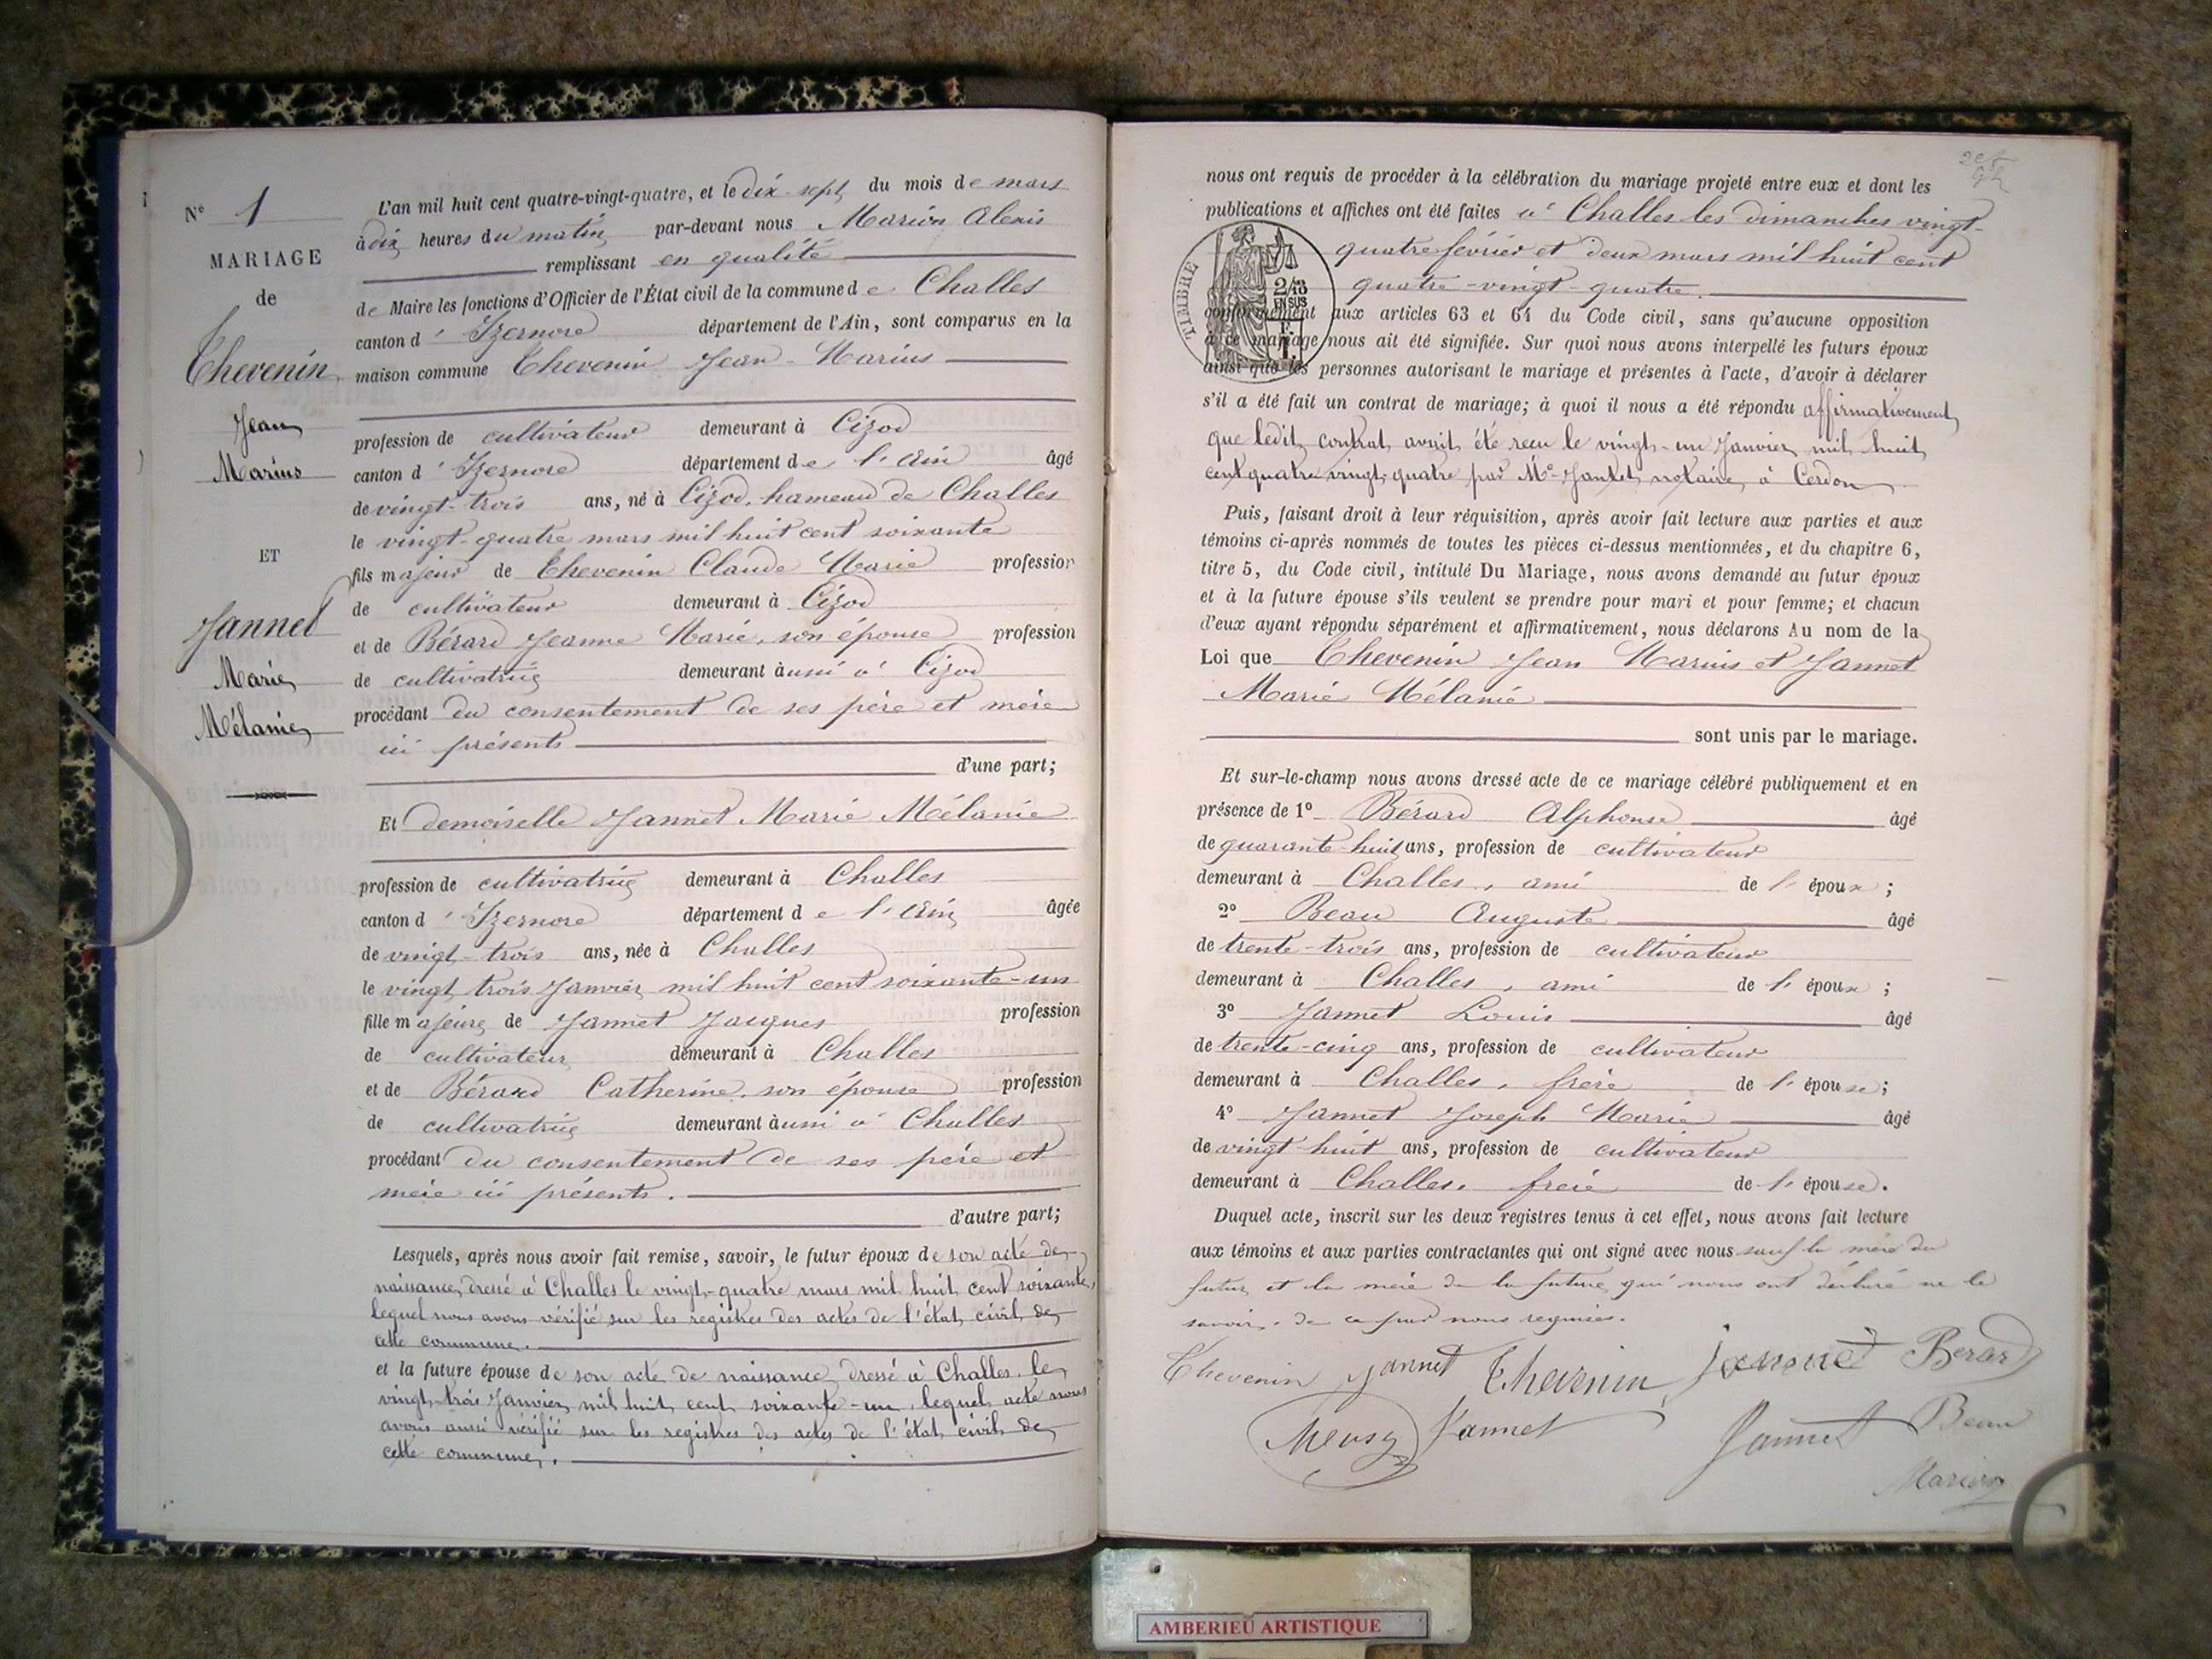 N° 1
MARIAGE
de
Thevenin
Jean
Marius
ET
Jannet
Marie
Mélanie
L'an mil huit cent quatre-vingt-quatre, et le dix-sept du mois de mars
à dix heures du matin par-devant nous Marion Alexis
remplissant en qualité
de Maire les fonctions d'Officier de l'État civil de la commune de Challes
canton d'Izernore département de l'Ain, sont comparus en la
maison commune Thevenin Jean-Marius
profession de cultivateur demeurant à Cizod
canton d'Izernore département de l'Ain âgé
de vingt-trois ans, né à Cizod, hameau de Challes
le vingt-quatre mars mil huit cent soixante
fils majeur de Thevenin Claude Marie profession
de cultivateur demeurant à Cizod
et de Bérard Jeanne Marie, son épouse profession
de cultivatrice demeurant aussi à Cizod
procédant du consentement de ses père et mère
ici présents
d'une part;
Et demoiselle Jannet Marie Mélanie
profession de cultivatrice demeurant à Challes
canton d'Izernore département de l'Ain âgée
de vingt-trois ans, née à Challes
le vingt trois Janvier mil huit cent soixante-un
fille majeure de Jannet Jacques profession
de cultivateur demeurant à Challes
et de Bérard Catherine, son épouse profession
de cultivatrice demeurant aussi à Challes
procédant du consentement de ses père et
mère ici présents.
d'autre part;
Lesquels, après nous avoir fait remise, savoir, le futur époux de son acte de
naissance, dressé à Challes le vingt-quatre mars mil huit cent soixante,
lequel nous avons vérifié sur les registres des actes de l'état civil de
cette commune.
et la future épouse de son acte de naissance dressé à Challes, le
vingt-trois Janvier mil huit cent soixante-un, lequel acte nous
avons aussi vérifié sur les registres des actes de l'état civil de
cette commune.
nous ont requis de procéder à la célébration du mariage projeté entre eux et dont les
publications et affiches ont été faites à Challes les dimanches vingt-
quatre février et deux mars mil huit cent
quatre-vingt-quatre.
TIMBRE
2/10
EN SUS
conformément aux articles 63 et 64 du Code civil, sans qu'aucune opposition
à ce mariage nous ait été signifiée. Sur quoi nous avons interpellé les futurs époux
ainsi que les personnes autorisant le mariage et présentes à l'acte, d'avoir à déclarer
s'il a été fait un contrat de mariage; à quoi il nous a été répondu affirmativement
que ledit contrat avait été reçu le vingt-un Janvier mil huit
cent quatre vingt-quatre par Me Jantet notaire, à Cerdon
Puis, faisant droit à leur réquisition, après avoir fait lecture aux parties et aux
témoins ci-après nommés de toutes les pièces ci-dessus mentionnées, et du chapitre 6,
titre 5, du Code civil, intitulé Du Mariage, nous avons demandé au futur époux
et à la future épouse s'ils veulent se prendre pour mari et pour femme; et chacun
d'eux ayant répondu séparément et affirmativement, nous déclarons Au nom de la
Loi que Thevenin Jean Marius et Jannet
Marie Mélanie
sont unis par le mariage.
Et sur-le-champ nous avons dressé acte de ce mariage célébré publiquement et en
présence de 1° Bérard Alphonse âgé
de quarante-huit ans, profession de cultivateur
demeurant à Challes, ami de l'époux;
2° Beau Auguste âgé
de trente-trois ans, profession de cultivateur
demeurant à Challes, ami de l'époux;
3° Jannet Louis âgé
de trente-cinq ans, profession de cultivateur
demeurant à Challes, frère de l'épouse;
4° Jannet Joseph Marie âgé
de vingt huit ans, profession de cultivateur
demeurant à Challes, frère de l'épouse.
Duquel acte, inscrit sur les deux registres tenus à cet effet, nous avons fait lecture
aux témoins et aux parties contractantes qui ont signé avec nous sauf la mère du
futur et la mère de la future qui nous ont déclaré ne le
savoir, de ce par nous requises.
Thevenin Jannet Thevenin Jannet Berard
Meusy Jannet Jannet Beau
Marion
AMBERIEU ARTISTIQUE